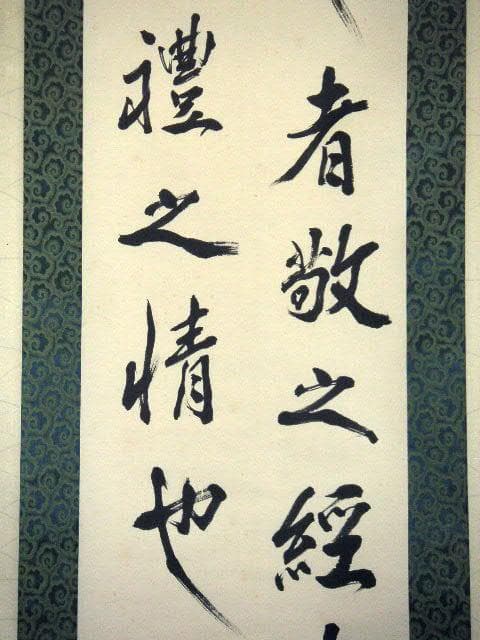 者敬之經
禮之情也